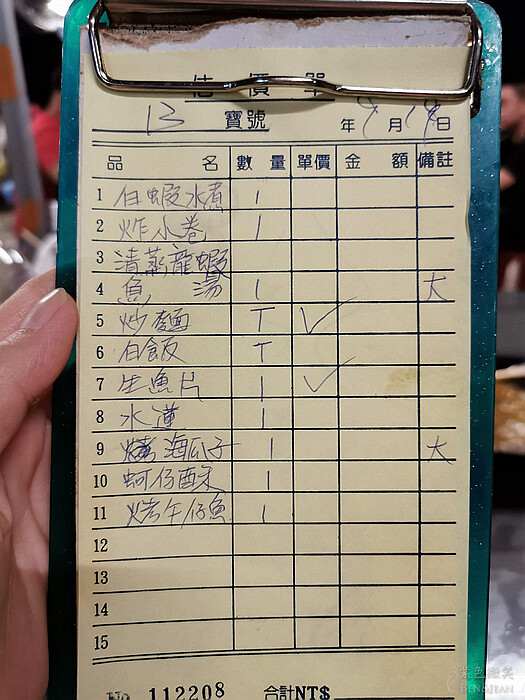 估價單
13 寶號 年 9 月 19 日
品名 數量 單價 金額 備註
1 白蝦水煮 1
2 炸小卷 1
3 清蒸龍蝦
4 魚湯 1 大
5 炒麵 T ✓
6 白飯 T
7 生魚片 1 ✓
8 水蓮 1
9 海瓜子 1 大
10 蚵仔酥 1
11 烤午仔魚 1
12
13
14
15
No 112208 合計NT$
紫色微笑
BEN&JEAN